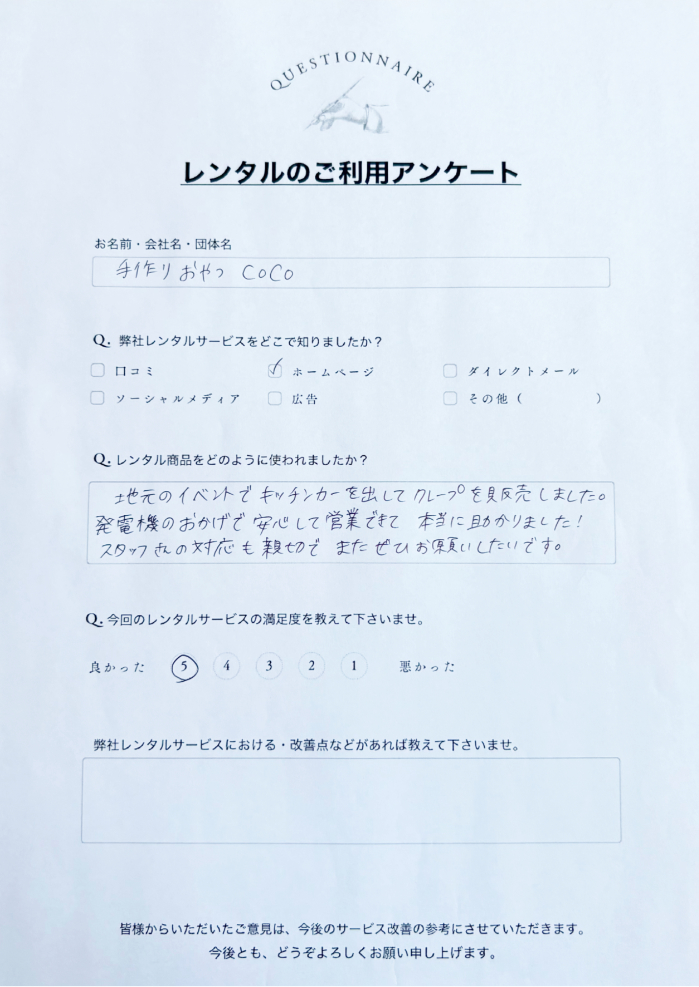 QUESTIONNAIRE
レンタルのご利用アンケート
お名前・会社名・団体名
手作りおやつ COCO
Q. 弊社レンタルサービスをどこで知りましたか？
口コミ ✓ ホームページ ダイレクトメール
ソーシャルメディア 広告 その他（ ）
Q. レンタル商品をどのように使われましたか？
地元のイベントでキッチンカーを出してクレープを販売しました。
発電機のおかげで安心して営業できて 本当に助かりました！
スタッフさんの対応も親切で またぜひお願いしたいです。
Q. 今回のレンタルサービスの満足度を教えて下さいませ。
良かった 5 4 3 2 1 悪かった
弊社レンタルサービスにおける・改善点などがあれば教えて下さいませ。
皆様からいただいたご意見は、今後のサービス改善の参考にさせていただきます。
今後とも、どうぞよろしくお願い申し上げます。